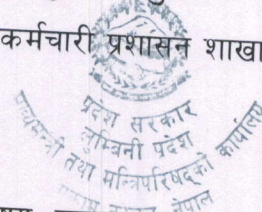 कर्मचारी प्रशासन शाखा
प्रदेश सरकार
लुम्बिनी प्रदेश
मुख्यमन्त्री तथा मन्त्रिपरिषद्को कार्यालय
नेपाल